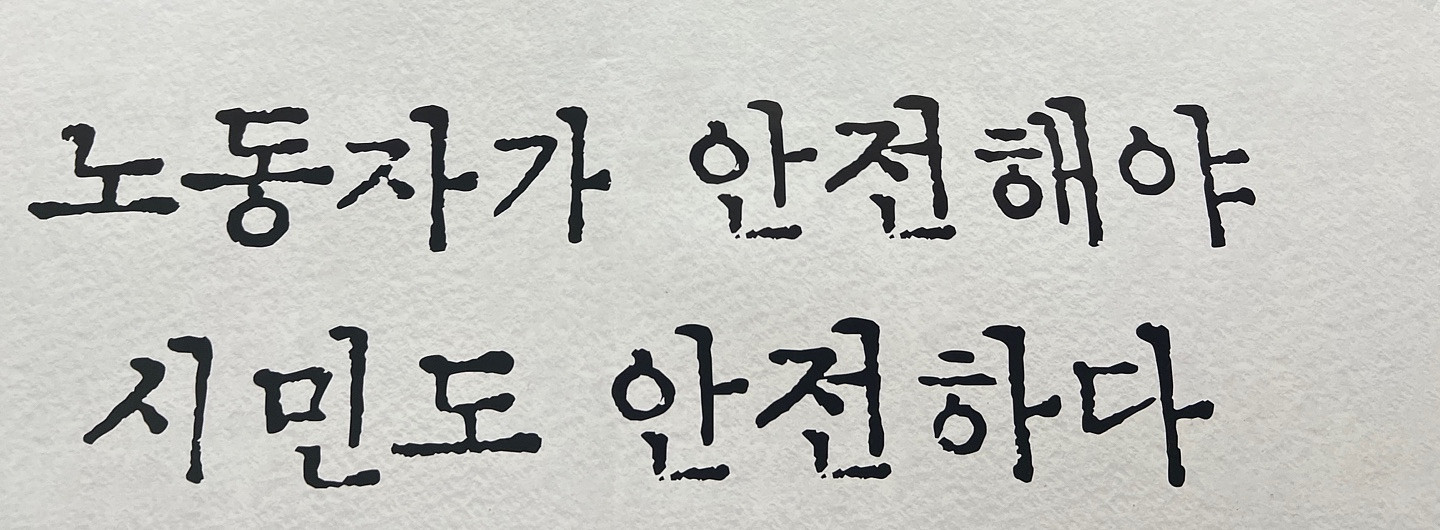 노동자가 안전해야
시민도 안전하다